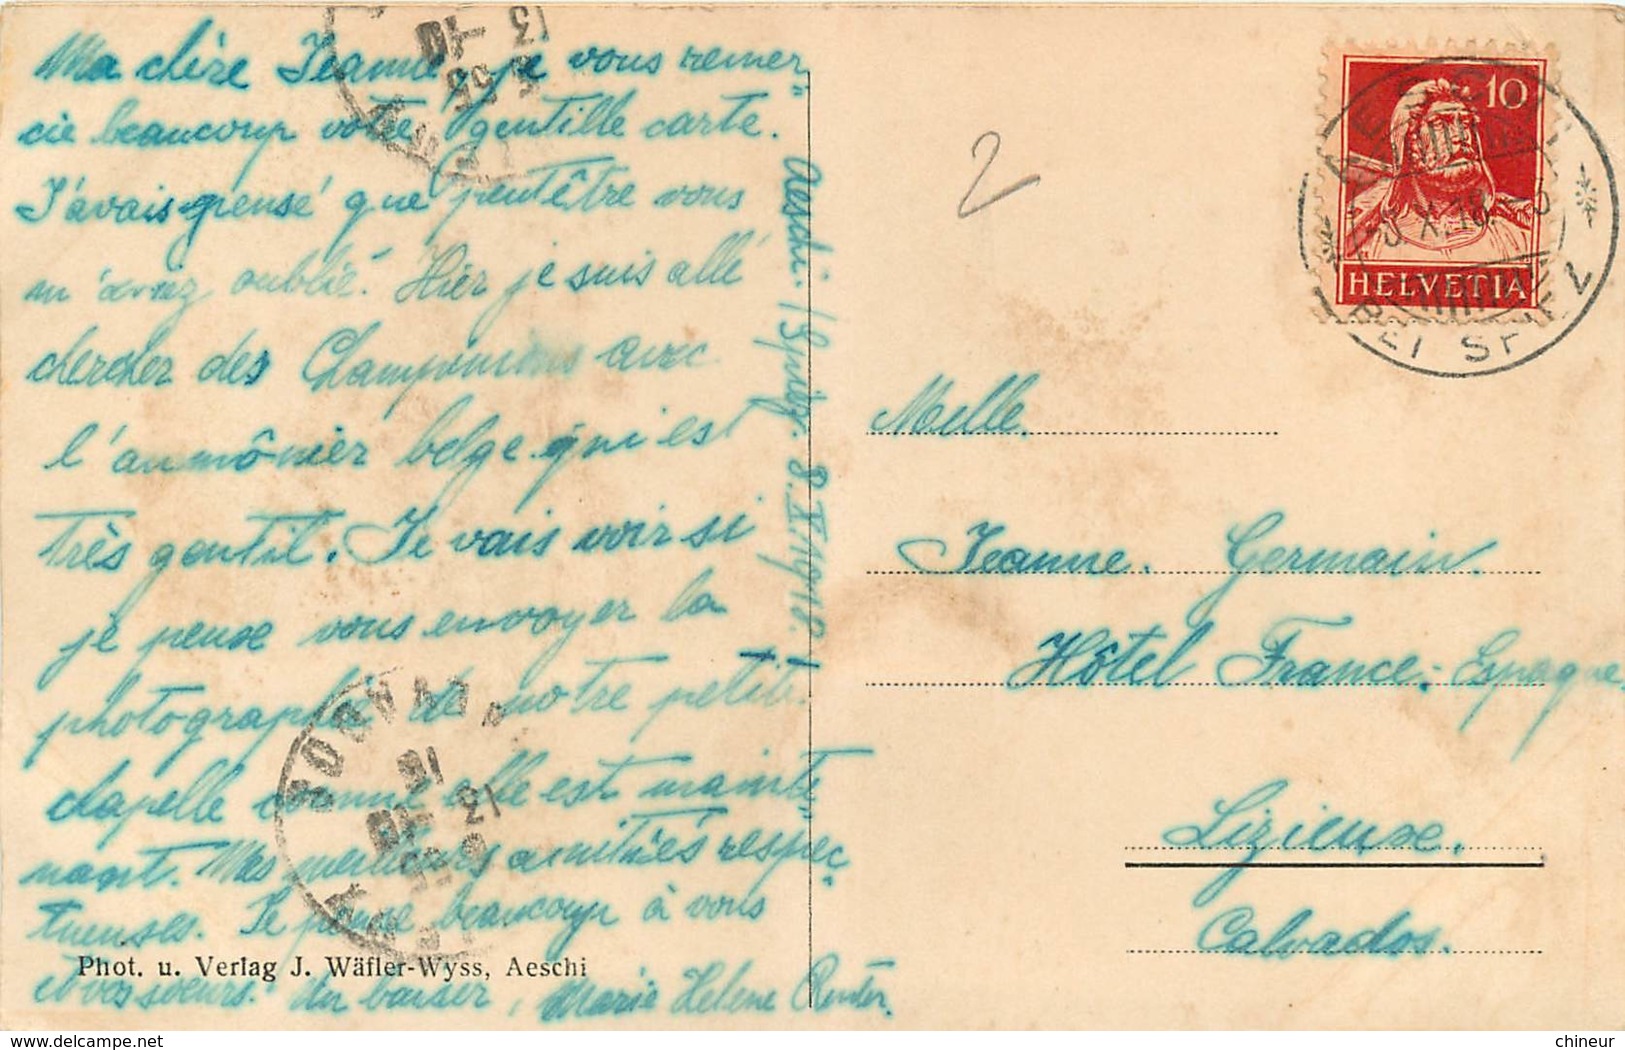 Ma chère Jeanne, je vous remer„
cie beaucoup votre gentille carte.
J'avais pensé que peutêtre vous
m'aviez oublié. Hier je suis allé
chercher des Champinions avec
l'aumônier belge qui est
très gentil. Je vais voir si
je peuxe vous envoyer la
photographie de notre petite
chapelle comme elle est mainte„
nant. Mes meilleures amitiés respec„
tuenses. Je pense beaucoup à vous
et vos soeurs. Un baiser, Marie Helene
Aeschi. 8. X 1918.
Phot. u. Verlag J. Wäfler-Wyss, Aeschi
2
10
HELVETIA
BEI SPIEZ
Melle.
Jeanne. Germain.
Hôtel France. Espagne.
Lizieuxe.
Calvados.
13 -10
13 -10
18
www.delcampe.net
chineur